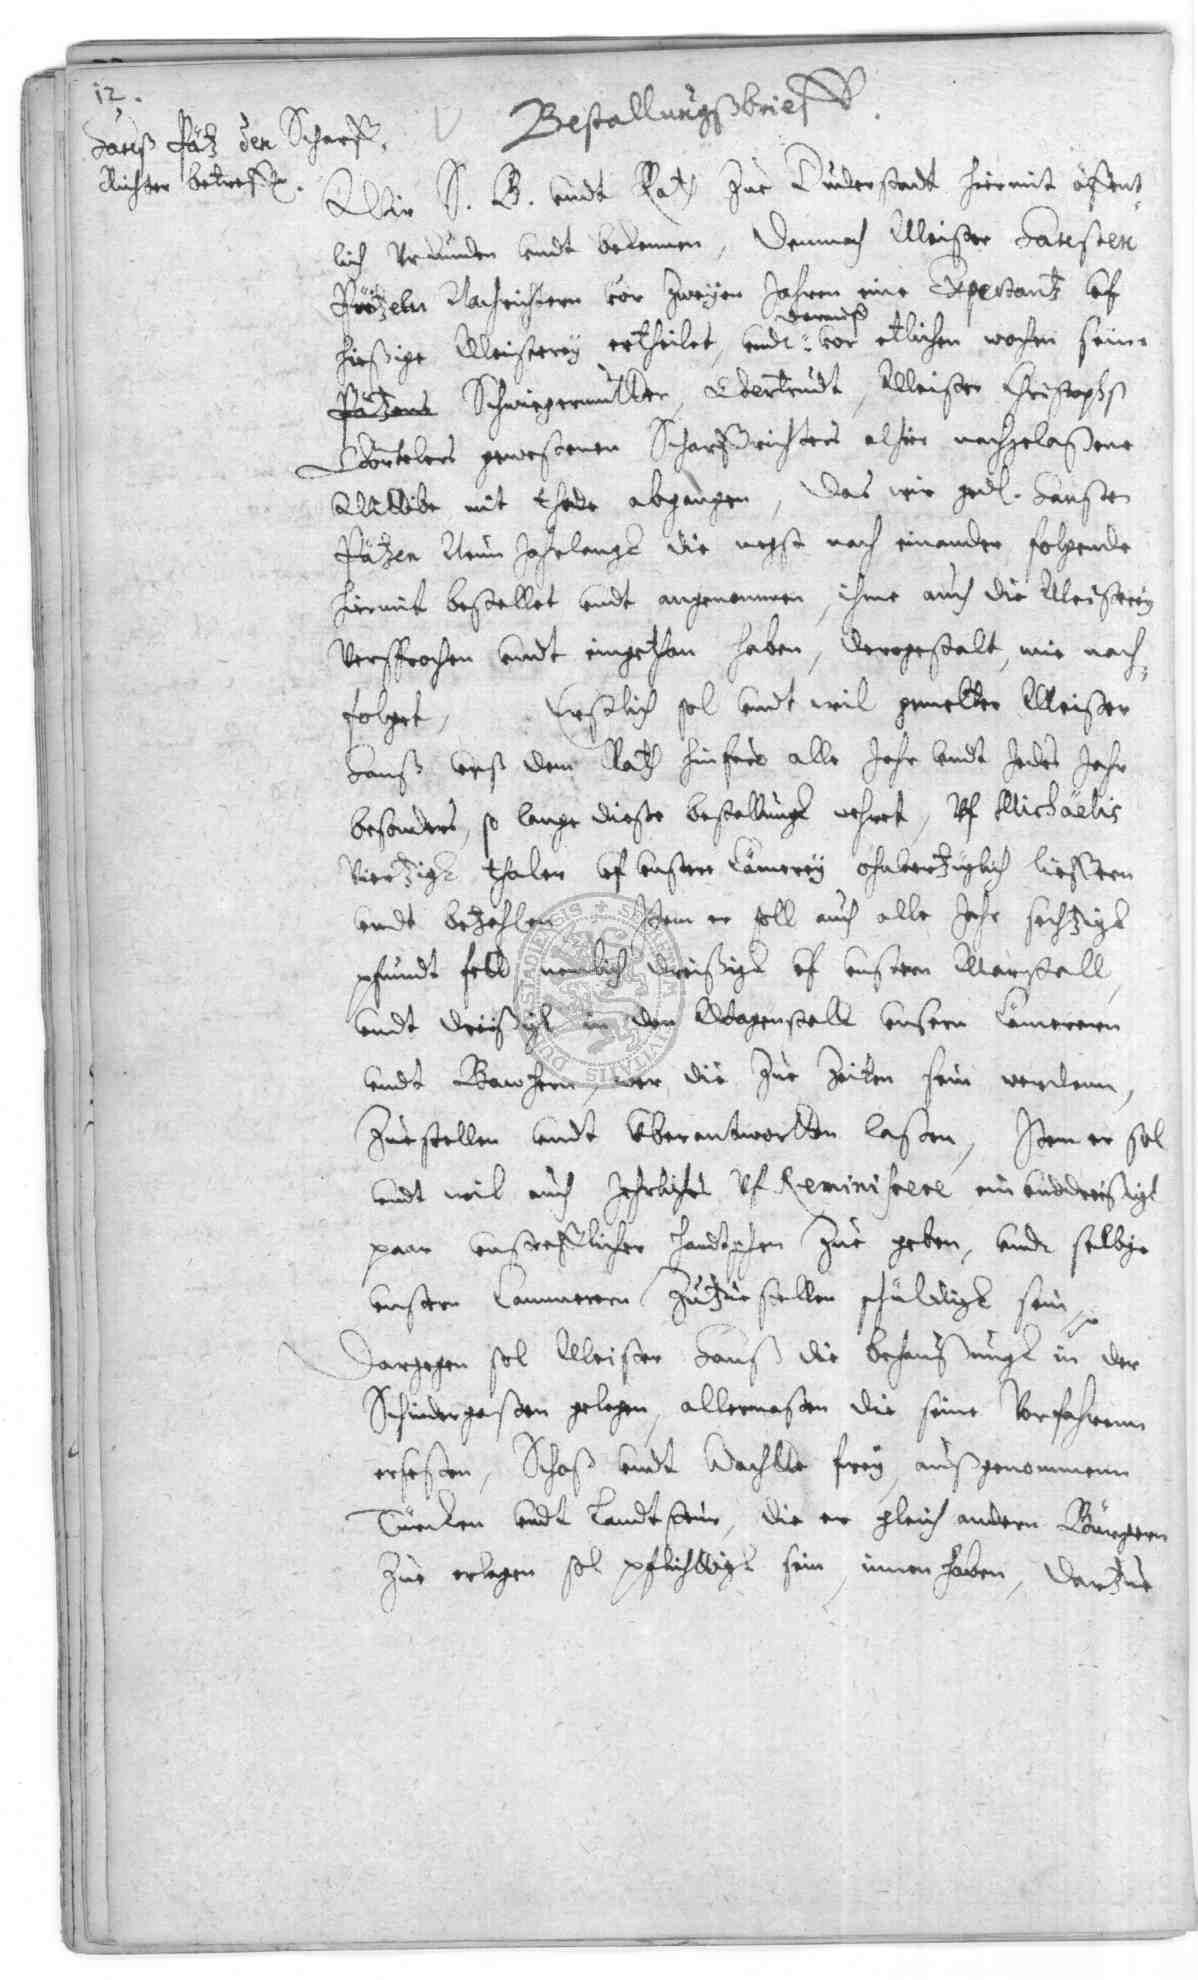 12.
Bestallungßbrieff.
Hanß Pätz den Scharff-
Richter betreffen.
Wir S. B. undt Rath Zue Duderstadt hiermit öffent-
lich Urkunden undt bekennen, Demnach Meister Hansten
Pätzeln Nachrichtern vor zweyen Jahren eine Expectantz uf
hießige Meisterey ertheilet, undt vor etlichen wochen seine
Pätzens Schwiegermutter, Meister Christophs
gewesenen Scharffrichters alhier nachgelaßene
Wittibe mit thode abgangen, Das wir gedl. Hansten
Pätzen Neun Jahrlangk die negst nach einander folgende
hiermit bestellet undt angenommen, ihme auch die Meisterey
Versprochen undt eingethan haben, dergestalt, wie nach-
folget, Erstlich sol undt wil gemelter Meister
Hanß unß dem Rath hinfuro alle Jahr undt Jedes Jahr
besonders, so lange dieße bestallungk wehret, Uf Michäelis
Viertzigk thaler uf unsere Cämerey ohnvertzüglich lieffern
undt betzahlen Item er soll auch alle Jahr sechtzigk
pfundt nemblich dreißigk uf unsern Marstall,
undt dreißigk in den Wagenstall unsern Cämerern
undt Bawhern, wer die Zue Zeiten sein werdenn,
Zuestellen undt überantwortten laßen, Item er sol
undt wil auch Jehrliches Uf Reminiscere ein unddreißigk
paar unstrefflicher handtschen Zue geben, undt selbige
unsern Cammerern Zutzuestellen schuldigk sein,
Dargegen sol Meister Hanß die behaußungk in der
Schindergaßen gelegen, allermaßen die seine Vorfahrenn
ersessen, Schoß undt Wachtte frey, außgenommenn
Türcken undt Landtsteur, die er gleich andern Bürgern
Zue erlegen sol pflichttigk sein, innen haben, Dartzue